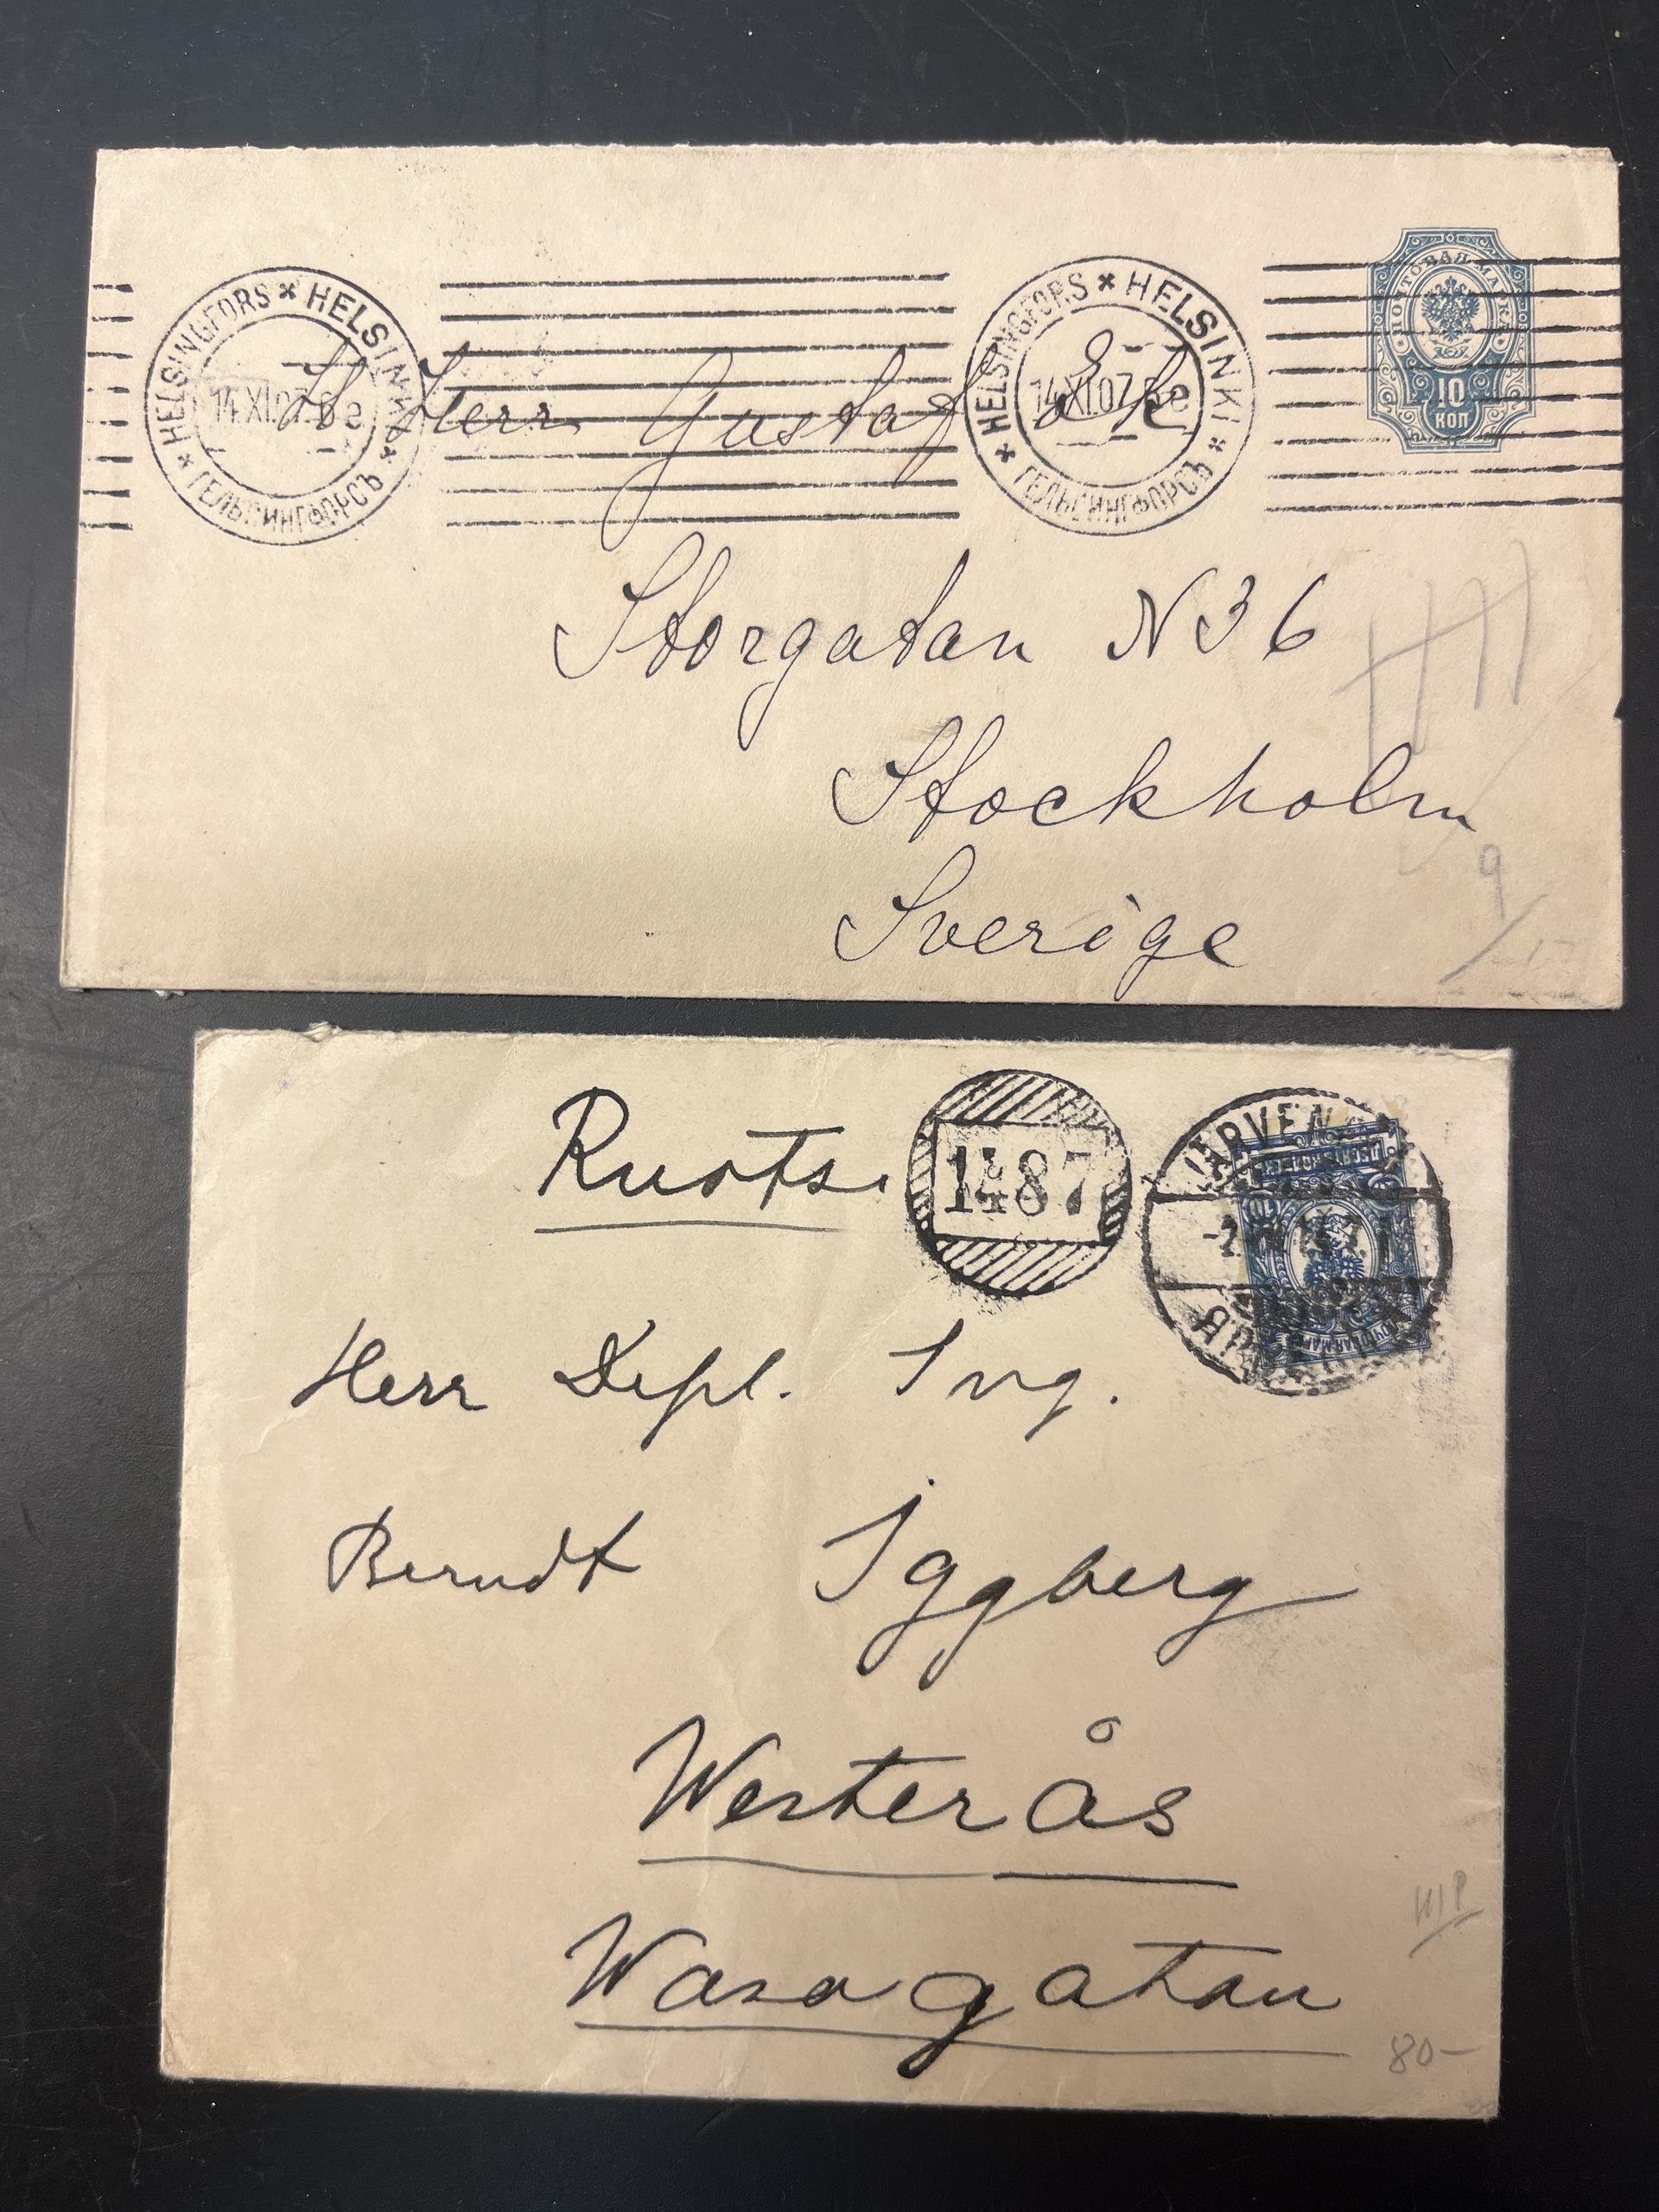 HELSINGFORS * HELSINKI * ГЕЛЬСИНГФОРСЪ *
14.XI.07.
HELSINGFORS * HELSINKI * ГЕЛЬСИНГФОРСЪ *
14.XI.07.
ПОЧТОВАЯ МАРКА
10
КОП
Herr Gustaf
Storgatan N36
Stockholm
Sverige
9
Ruotsi
1487
ПОЧТОВАЯ МАРКА
Herr Dipl. Ing.
Berndt Iggberg
Westerås
Wasagatan
80-